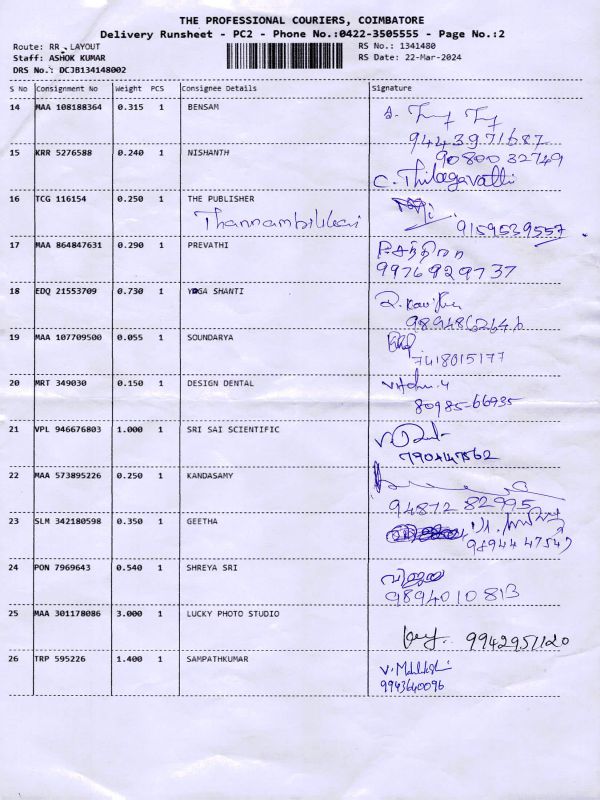 THE PROFESSIONAL COURIERS, COIMBATORE
Delivery Runsheet - PC2 - Phone No.:0422-3505555 - Page No.:2
Route: RR LAYOUT RS No.: 1341480
Staff: ASHOK KUMAR RS Date: 22-Mar-2024
DRS No.: DCJB134148002
S No Consignment No Weight PCS Consignee Details Signature
14 MAA 108188364 0.315 1 BENSAM
9443971687
15 KRR 5276588 0.240 1 NISHANTH 9080032749
C. Thilagavathi
16 TCG 116154 0.250 1 THE PUBLISHER
Thannambikkai 9159539557
17 MAA 864847631 0.290 1 PREVATHI
9976929737
18 EDQ 21553709 0.730 1 YOGA SHANTI
19 MAA 107709500 0.055 1 SOUNDARYA
7418015177
20 MRT 349030 0.150 1 DESIGN DENTAL
80985-66935
21 VPL 946676803 1.000 1 SRI SAI SCIENTIFIC
7904147562
22 MAA 573895226 0.250 1 KANDASAMY
94872 82995
23 SLM 342180598 0.350 1 GEETHA
98944 47547
24 PON 7969643 0.540 1 SHREYA SRI
9894010813
25 MAA 301178086 3.000 1 LUCKY PHOTO STUDIO
9942951120
26 TRP 595226 1.400 1 SAMPATHKUMAR
9943640096